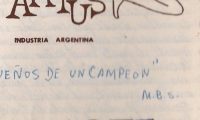 INDUSTRIA ARGENTINA
UEÑOS DE UN CAMPEON"
M.B.S.